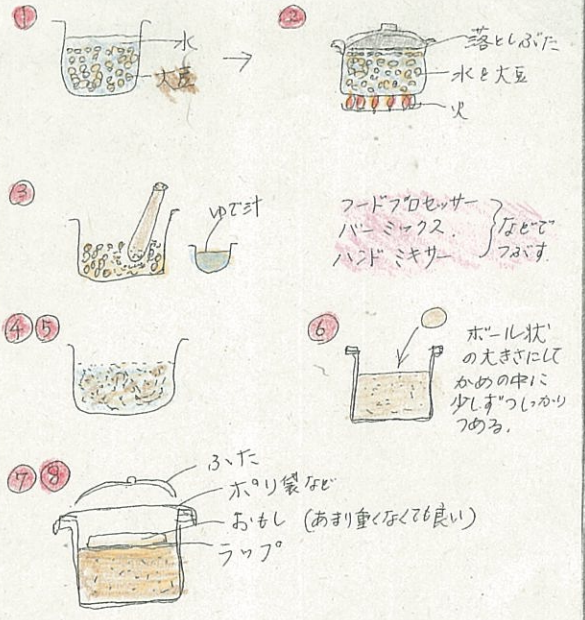 ①
水
大豆
→
②
落としぶた
水と大豆
火
③
ゆで汁
フードプロセッサー
バーミックス.
ハンドミキサー
などで
つぶす.
④⑤
⑥
ボール状
の大きさにして
かめの中に
少しずつしっかり
つめる.
⑦⑧
ふた
ポリ袋など
おもし (あまり重くなくても良い)
ラップ